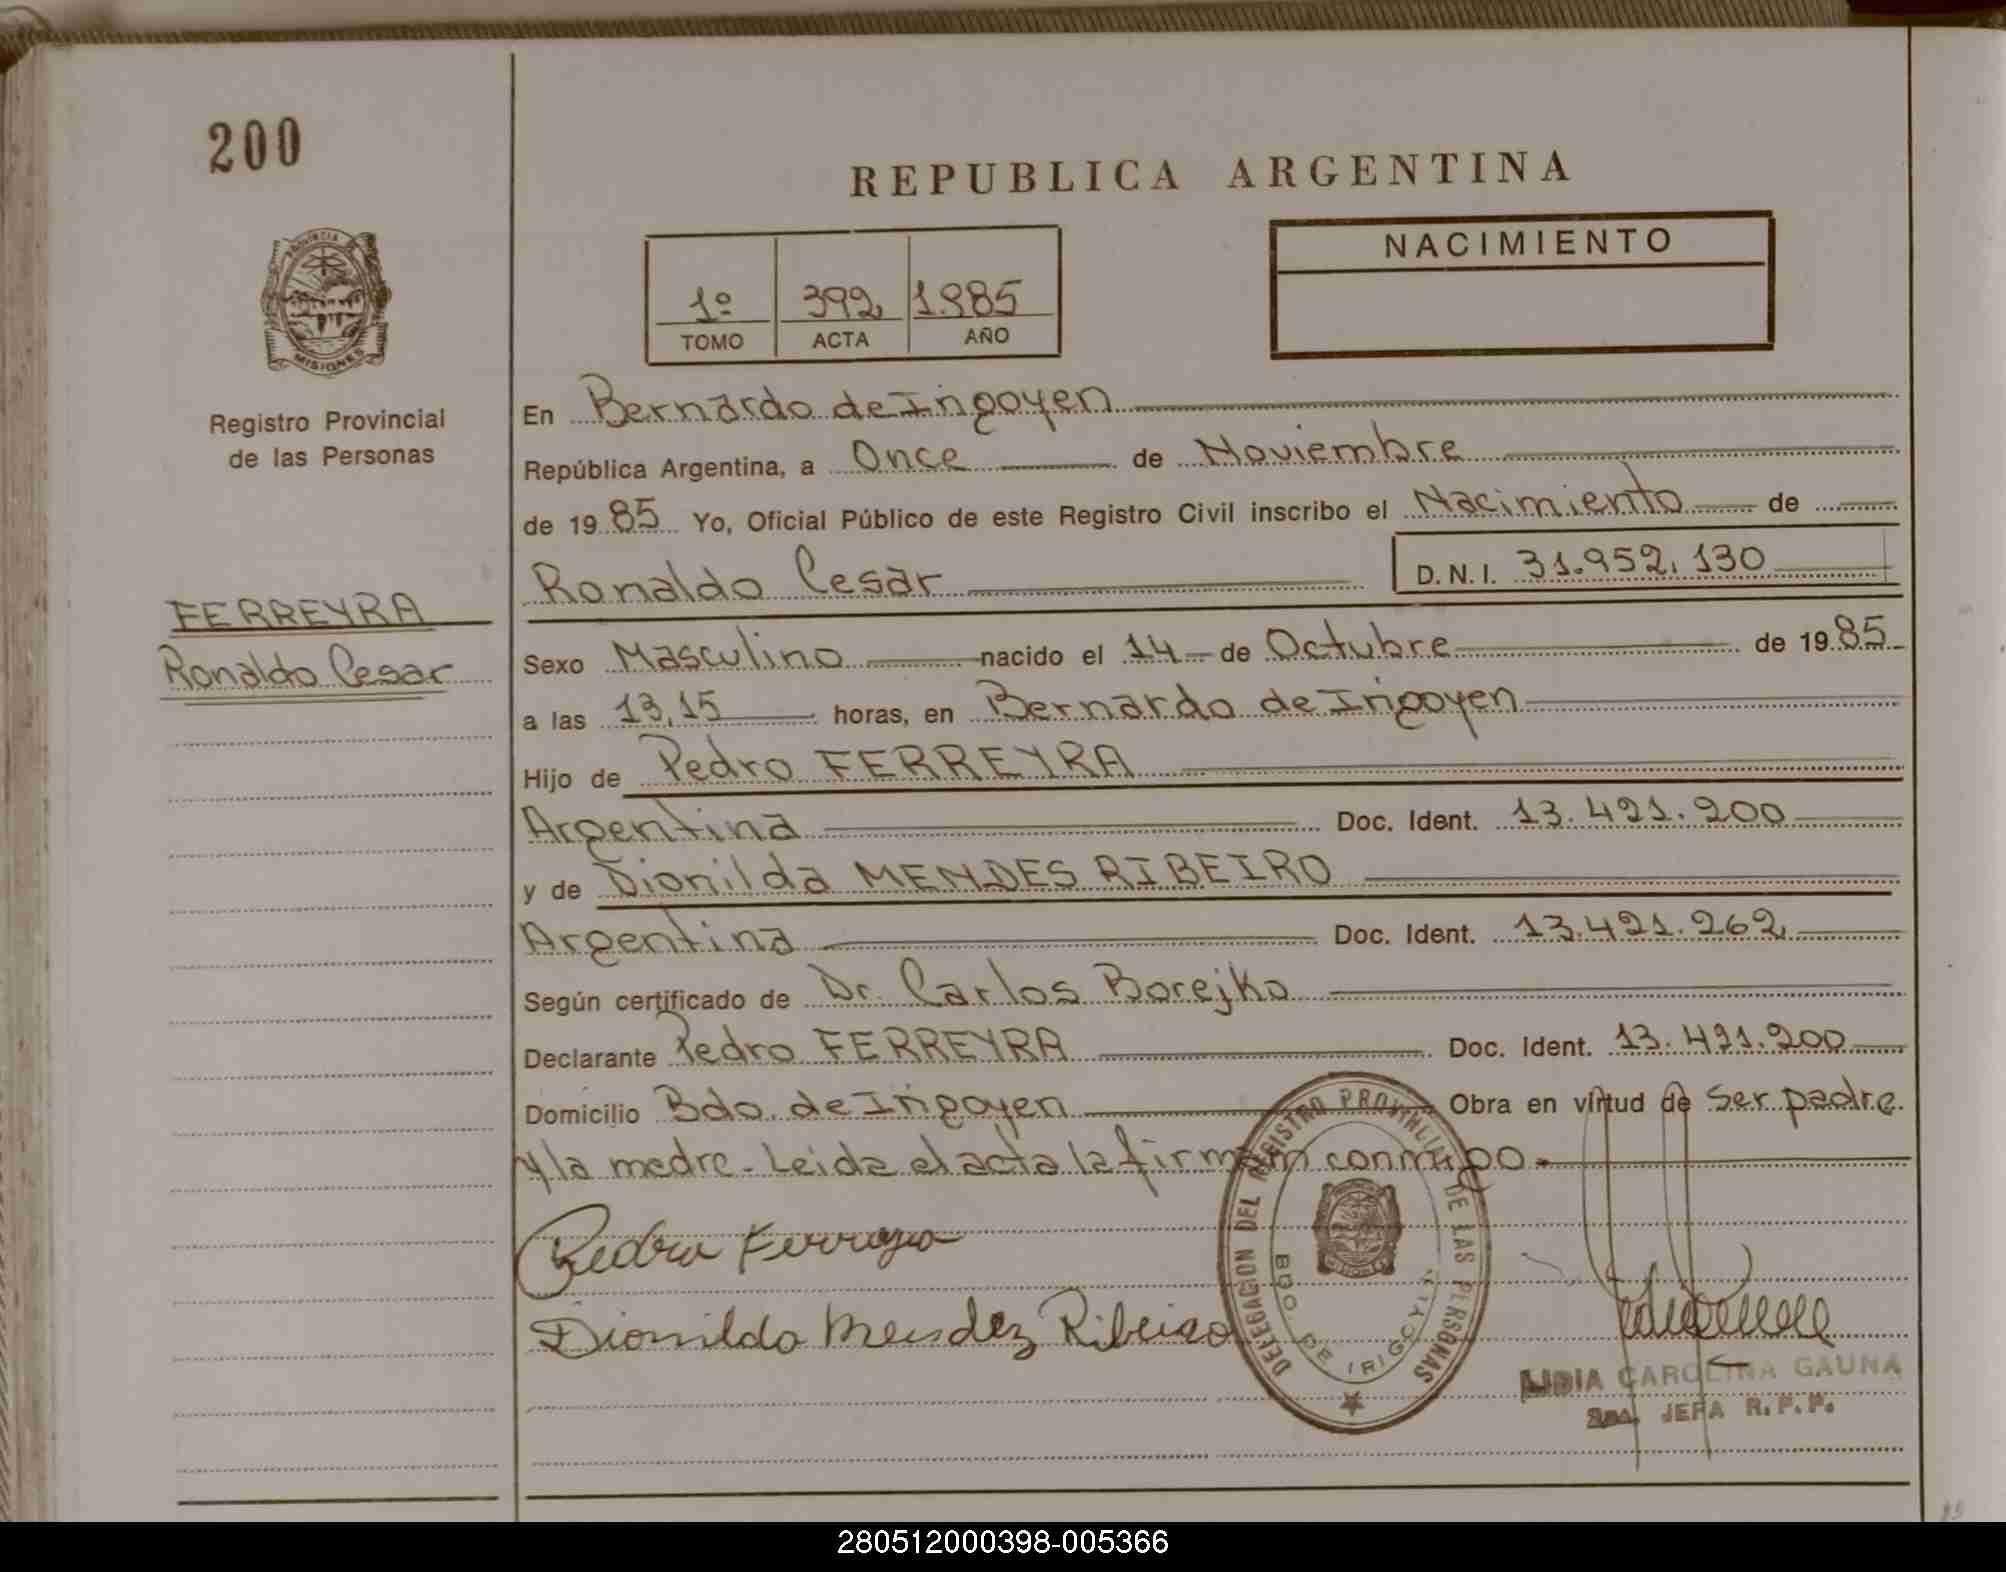 200
REPUBLICA ARGENTINA
PROVINCIA DE
MISIONES
1º 392 1.985
TOMO ACTA AÑO
NACIMIENTO
Registro Provincial
de las Personas
FERREYRA
Ronaldo Cesar
En Bernardo de Irigoyen
República Argentina, a Once de Noviembre
de 19 85 Yo, Oficial Público de este Registro Civil inscribo el Nacimiento de
Ronaldo Cesar D.N.I. 31.952.130
Sexo Masculino nacido el 14 de Octubre de 19 85
a las 13,15 horas, en Bernardo de Irigoyen
Hijo de Pedro FERREYRA
Argentina Doc. Ident. 13.421.200
y de Dionilda MENDES RIBEIRO
Argentina Doc. Ident. 13.421.262
Según certificado de Dr. Carlos Borejko
Declarante Pedro FERREYRA Doc. Ident. 13.421.200
Domicilio Bdo. de Irigoyen Obra en virtud de ser padre
y la madre.- Leida el acta la firman conmigo.-
Pedro Ferreyra
Dionilda Mendez Ribeiro
DELEGACION DEL REGISTRO PROVINCIAL DE LAS PERSONAS
BDO. DE IRIGOYEN
LIDIA CAROLINA GAUNA
JEFA R.P.P.
280512000398-005366